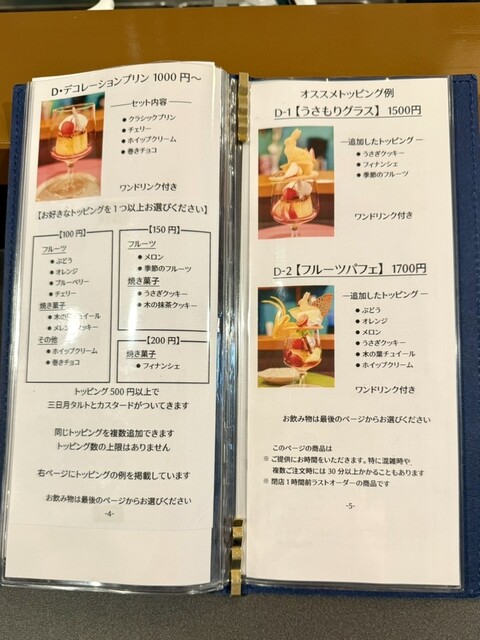 D・デコレーションプリン 1000 円～
ーセット内容ー
● クラシックプリン
● チェリー
● ホイップクリーム
● 巻きチョコ
ワンドリンク付き
【お好きなトッピングを1つ以上お選びください】
【100 円】
フルーツ
● ぶどう
● オレンジ
● ブルーベリー
● チェリー
焼き菓子
● 木の葉チュイール
● メレンゲクッキー
その他
● ホイップクリーム
● 巻きチョコ
【150 円】
フルーツ
● メロン
● 季節のフルーツ
焼き菓子
● うさぎクッキー
● 木の抹茶クッキー
【200 円】
焼き菓子
● フィナンシェ
トッピング 500 円以上で
三日月タルトとカスタードがついてきます
同じトッピングを複数追加できます
トッピング数の上限はありません
右ページにトッピングの例を掲載しています
お飲み物は最後のページからお選びください
-4-
オススメトッピング例
D-1【うさもりグラス】1500円
ー追加したトッピングー
● うさぎクッキー
● フィナンシェ
● 季節のフルーツ
ワンドリンク付き
D-2【フルーツパフェ】1700円
ー追加したトッピングー
● ぶどう
● オレンジ
● メロン
● うさぎクッキー
● 木の葉チュイール
● ホイップクリーム
ワンドリンク付き
お飲み物は最後のページからお選びください
このページの商品は
※ ご提供にお時間をいただきます。特に混雑時や
複数ご注文時には 30 分以上かかることもあります
※ 閉店1時間前ラストオーダーの商品です
-5-